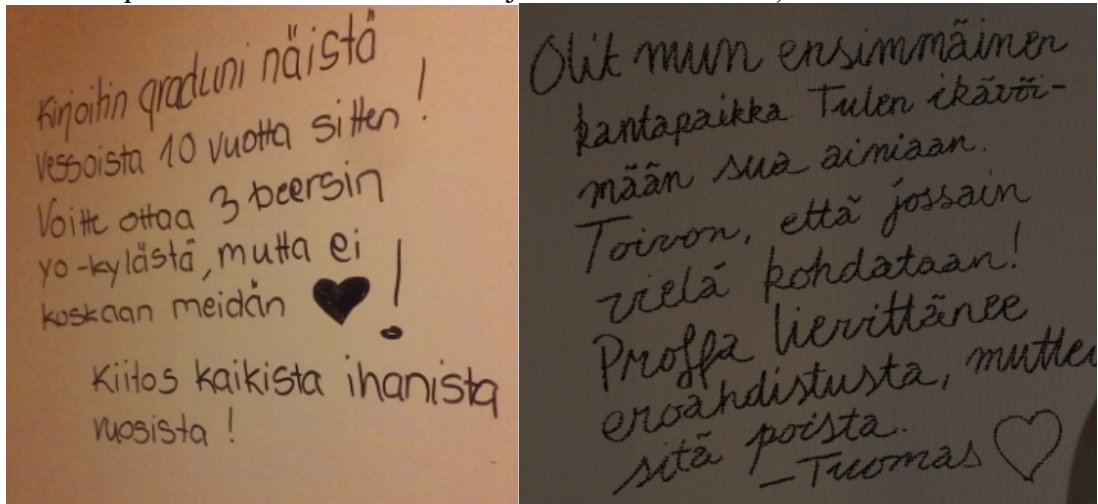 Kirjoitin graduni näistä
vessoista 10 vuotta sitten!
Voitte ottaa 3 beersin
yo-kylästä, mutta ei
koskaan meidän ♥!
Kiitos kaikista ihanista
vuosista!
Olit mun ensimmäinen
kantapaikka. Tulen ikävöi-
mään sua ainiaan.
Toivon, että jossain
vielä kohdataan!
Proffa lievittänee
eroahdistusta, muttei
sitä poista.
-Tuomas ♡